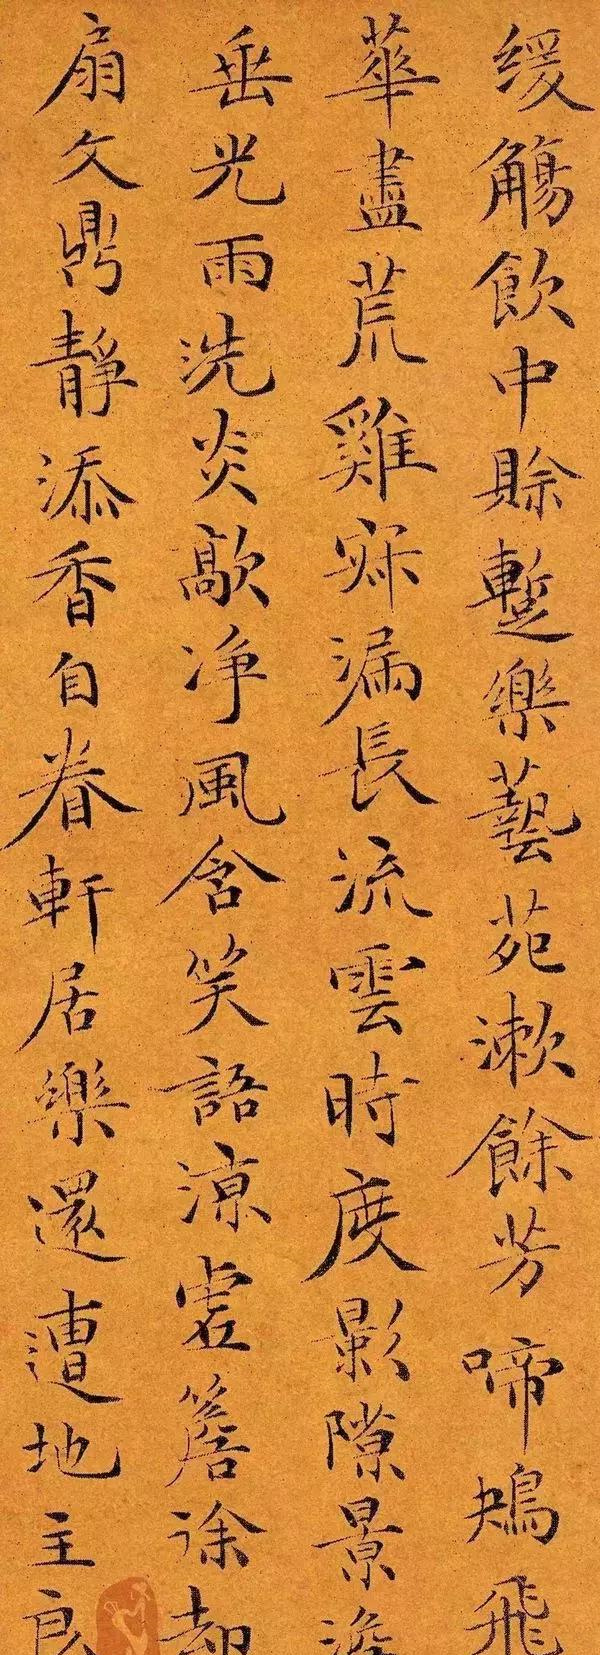 缓觴飲中賖蹔樂藝苑漱餘芳啼鴂飛
華盡荒雞寐漏長流雲時度影隙景澹
垂光雨洗炎歊净風含笑語涼虚簷徐却
扇久鼎靜添香自眷軒居樂還遭地主良